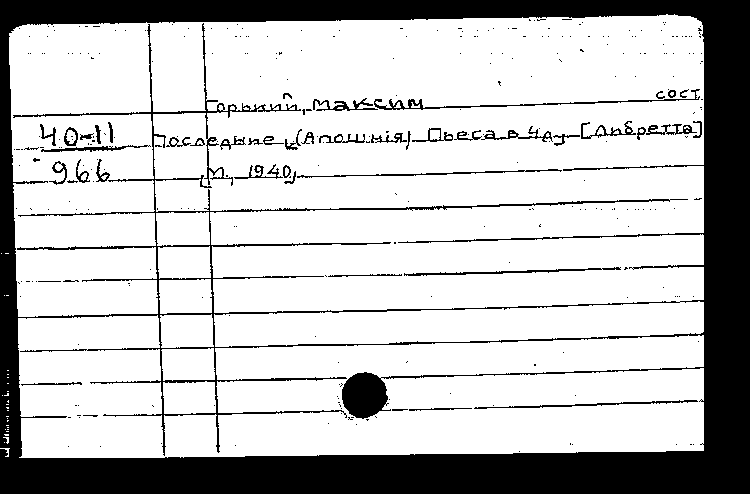 Горький, Максим сост
40-11 Последние (Апошнія) Пьеса в 4 д. [Либретто]
966 М., 1940,